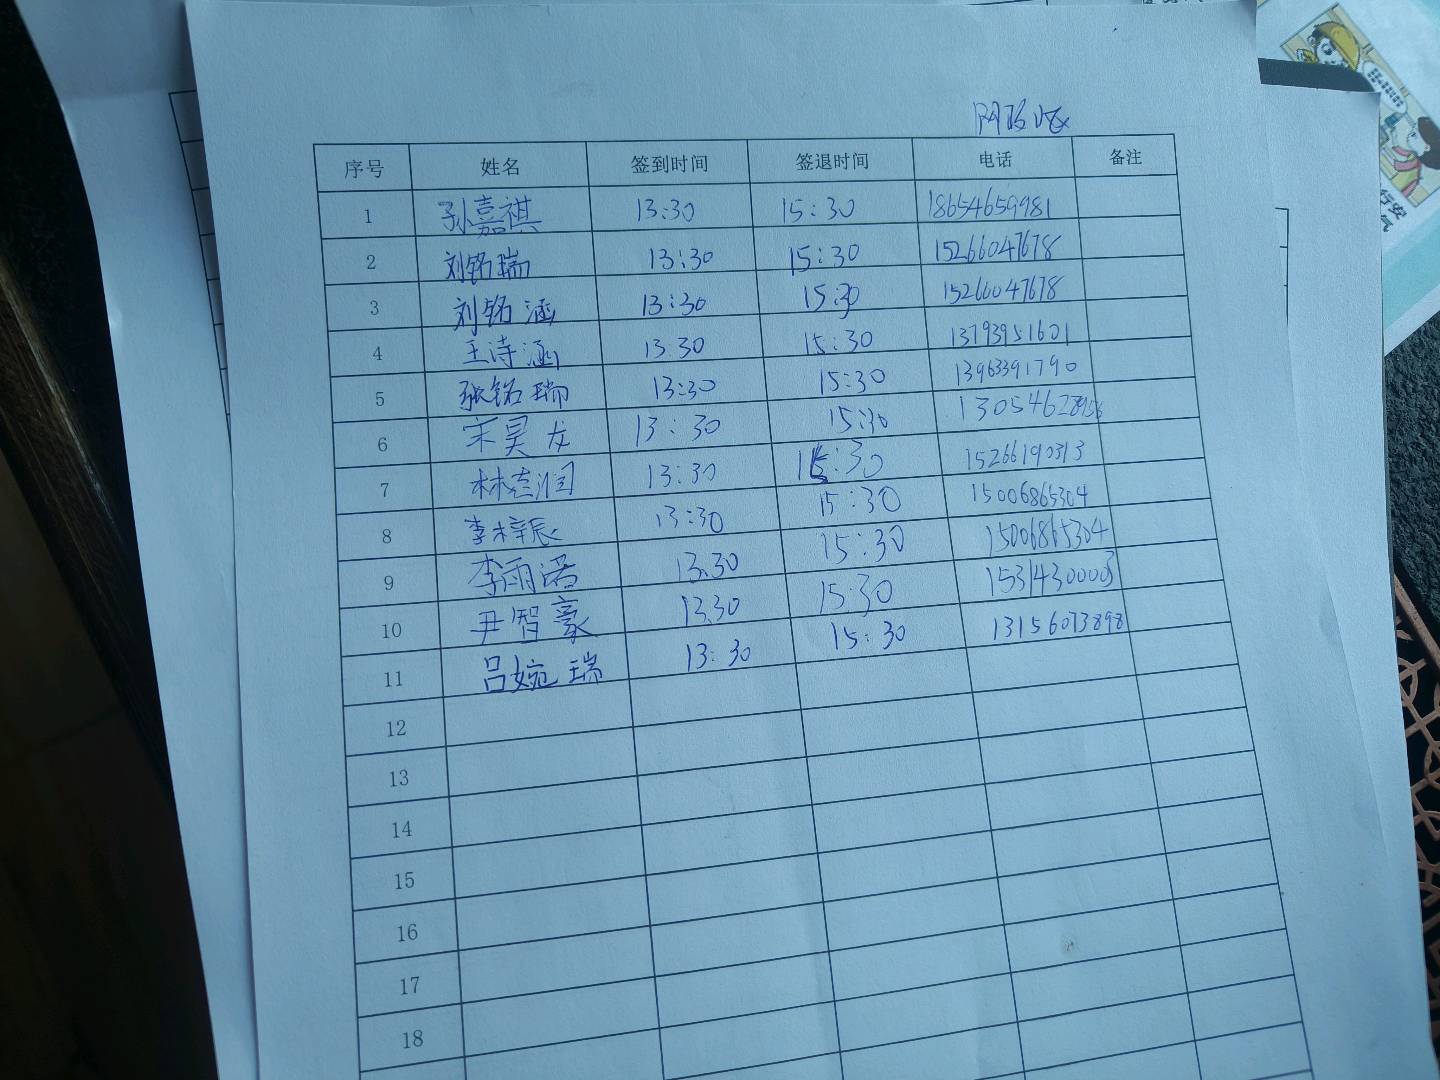 序号 姓名 签到时间 签退时间 电话 备注
1 孙嘉祺 13:30 15:30 18654659981
2 刘铭瑞 13:30 15:30 15266047678
3 刘铭涵 13:30 15:30 15266047678
4 王诗涵 13.30 15:30 13793951601
5 张铭瑞 13:30 15:30 13963391790
6 宋昊龙 13:30 15:30
7 13:30 15:30 15266190313
8 李梓辰 13:30 15:30 15006865304
9 13.30 15:30 15006865304
10 尹智豪 13.30 15:30 15314300003
11 吕婉瑞 13:30 15:30 13156073898
12
13
14
15
16
17
18
行安